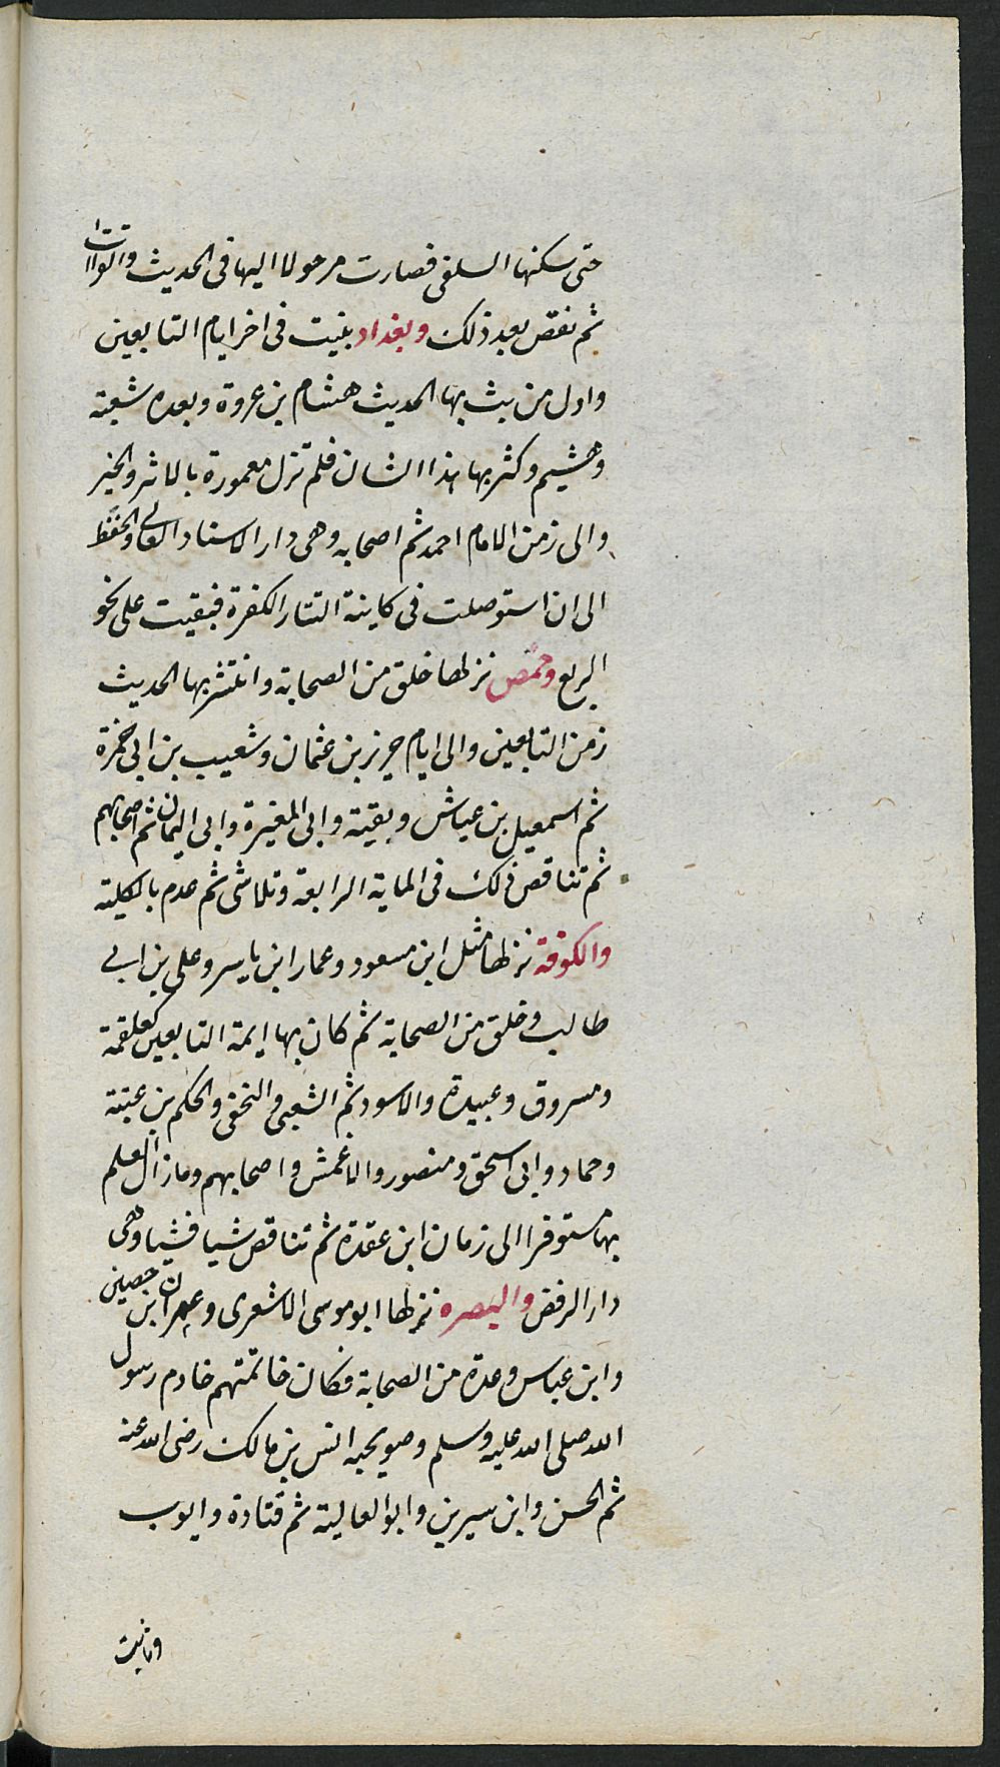 حتى سكنها السلفى فصارت مرحولا اليها فى الحديث والقراات
ثم نقص بعد ذلك وبغداد بنيت فى اخر ايام التابعين
واول من بث بها الحديث هشام بن عروة وبعده شعبة
وهشيم وكثر بها هذا الشان فلم تزل معمورة بالاثر والخير
والى زمن الامام احمد ثم اصحابه وهى دار الاسناد العالى والحفظ
الى ان استوصلت فى كاينة التتار الكفرة فبقيت على نحو
الربع وحمص نزلها خلق من الصحابة وانتشر بها الحديث
زمن التابعين والى ايام حريز بن عثمان وشعيب بن ابى حمزة
ثم اسمعيل بن عياش وبقية وابى المغيرة وابى اليمان ثم اصحابهم
ثم تناقص ذلك فى الماية الرابعة وتلاشى ثم عدم بالكلية
والكوفة نزلها مثل ابن مسعود وعمار ابن ياسر وعلى بن ابى
طالب وخلق من الصحابة ثم كان بها ايمة التابعين كعلقمة
ومسروق وعبيدة والاسود ثم الشعبى والنخعى والحكم بن عتبة
وحماد وابى اسحق ومنصور والاعمش واصحابهم وما زال العلم
بها متوفرا الى زمان ابن عقدة ثم تناقص شيا فشيا وهى
دار الرفض والبصره نزلها ابو موسى الاشعرى وعمران ابن حصين
وابن عباس وعدة من الصحابة فكان خاتمتهم خادم رسول
الله صلى الله عليه وسلم وصويحبه انس بن مالك رضى الله عنه
ثم الحسن وابن سيرين وابو العالية ثم قتادة وايوب
وثابت